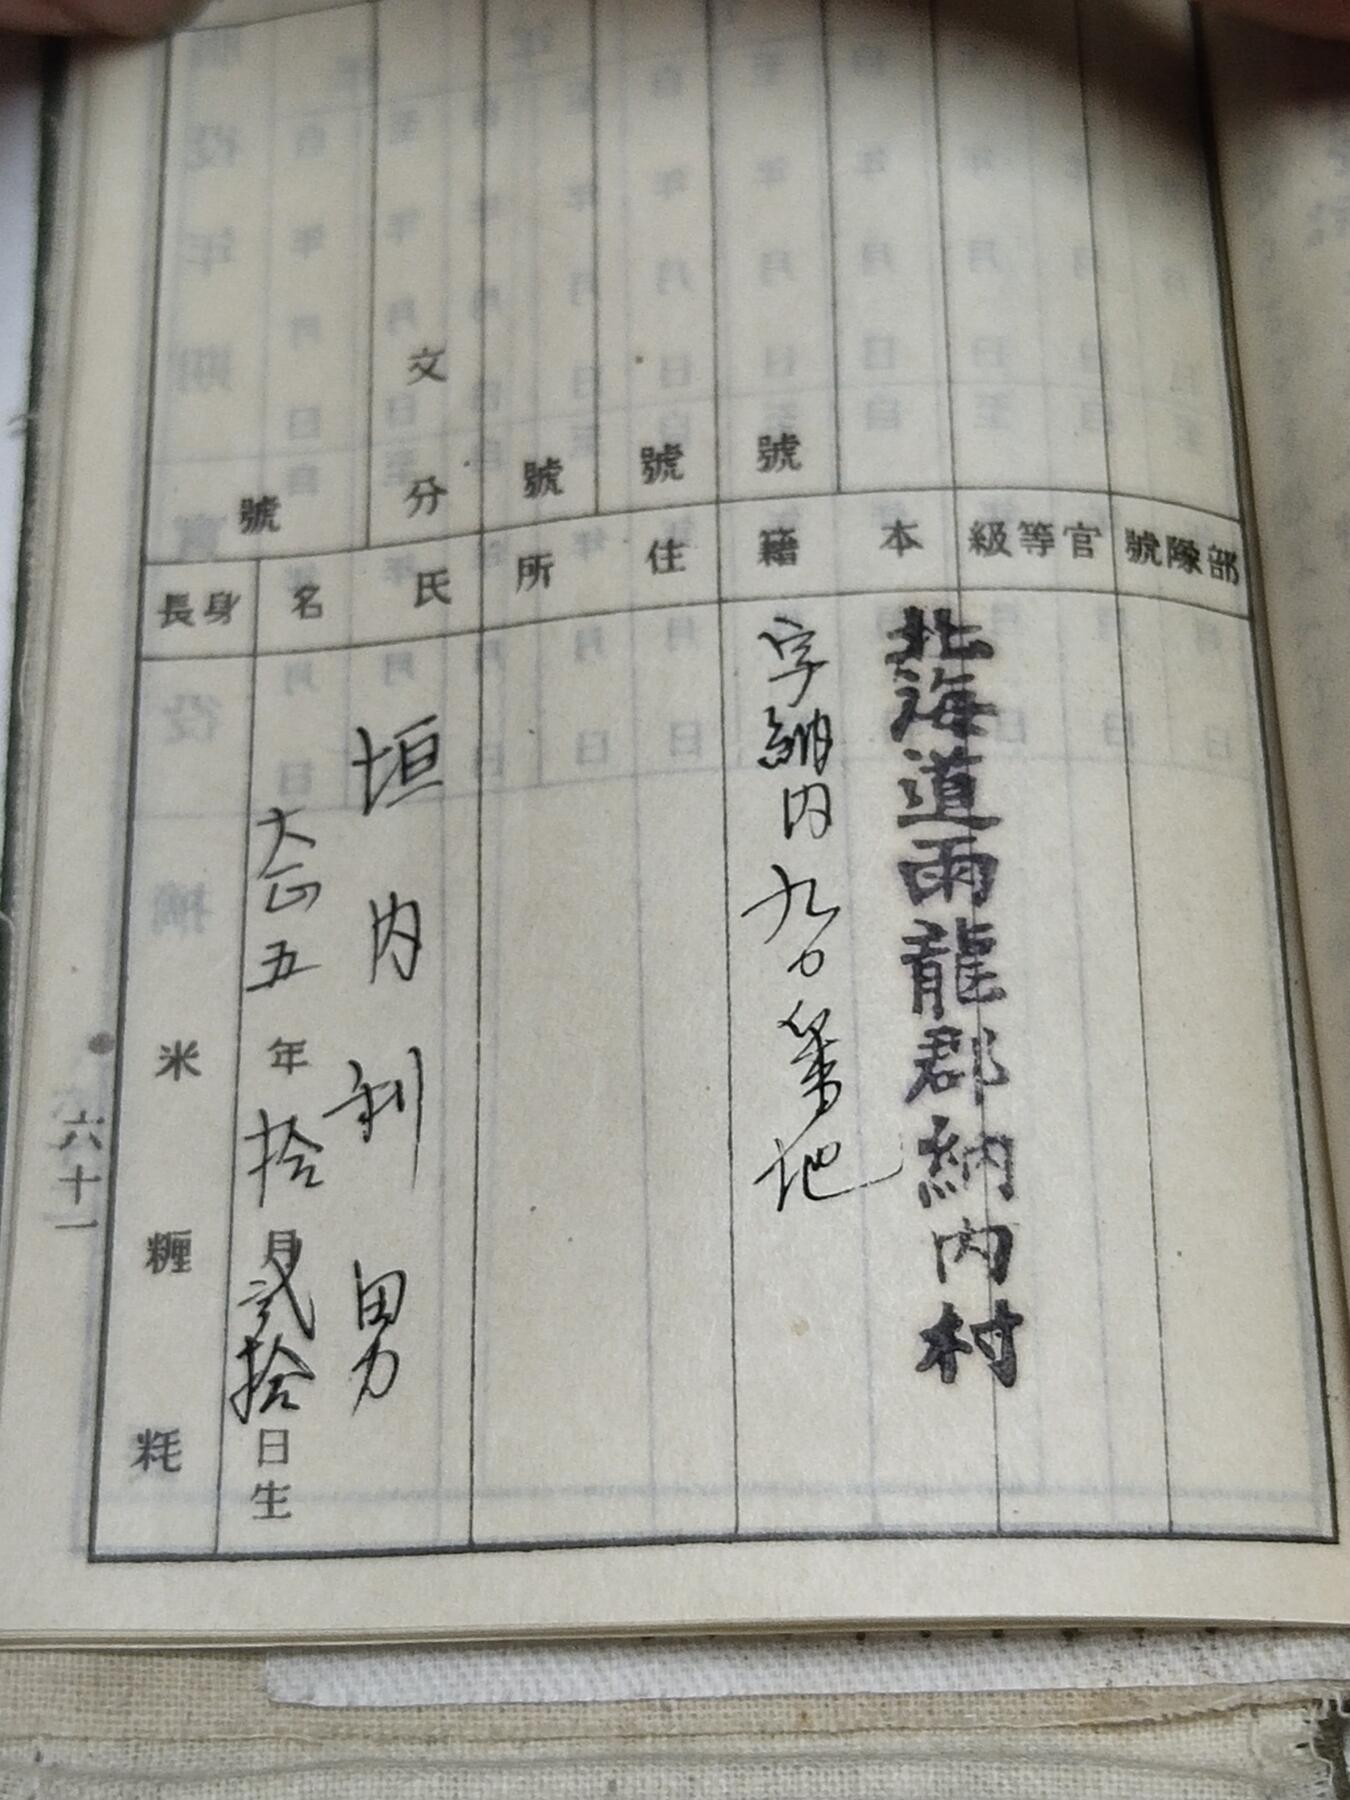 部隊號
官等級
本籍
北海道雨龍郡納内村
字納内九〇番地
號
住所
號
號
氏名
垣内利男
大正五年拾月貳拾日生
文
分
號
身長
米
糎
粍
六十一